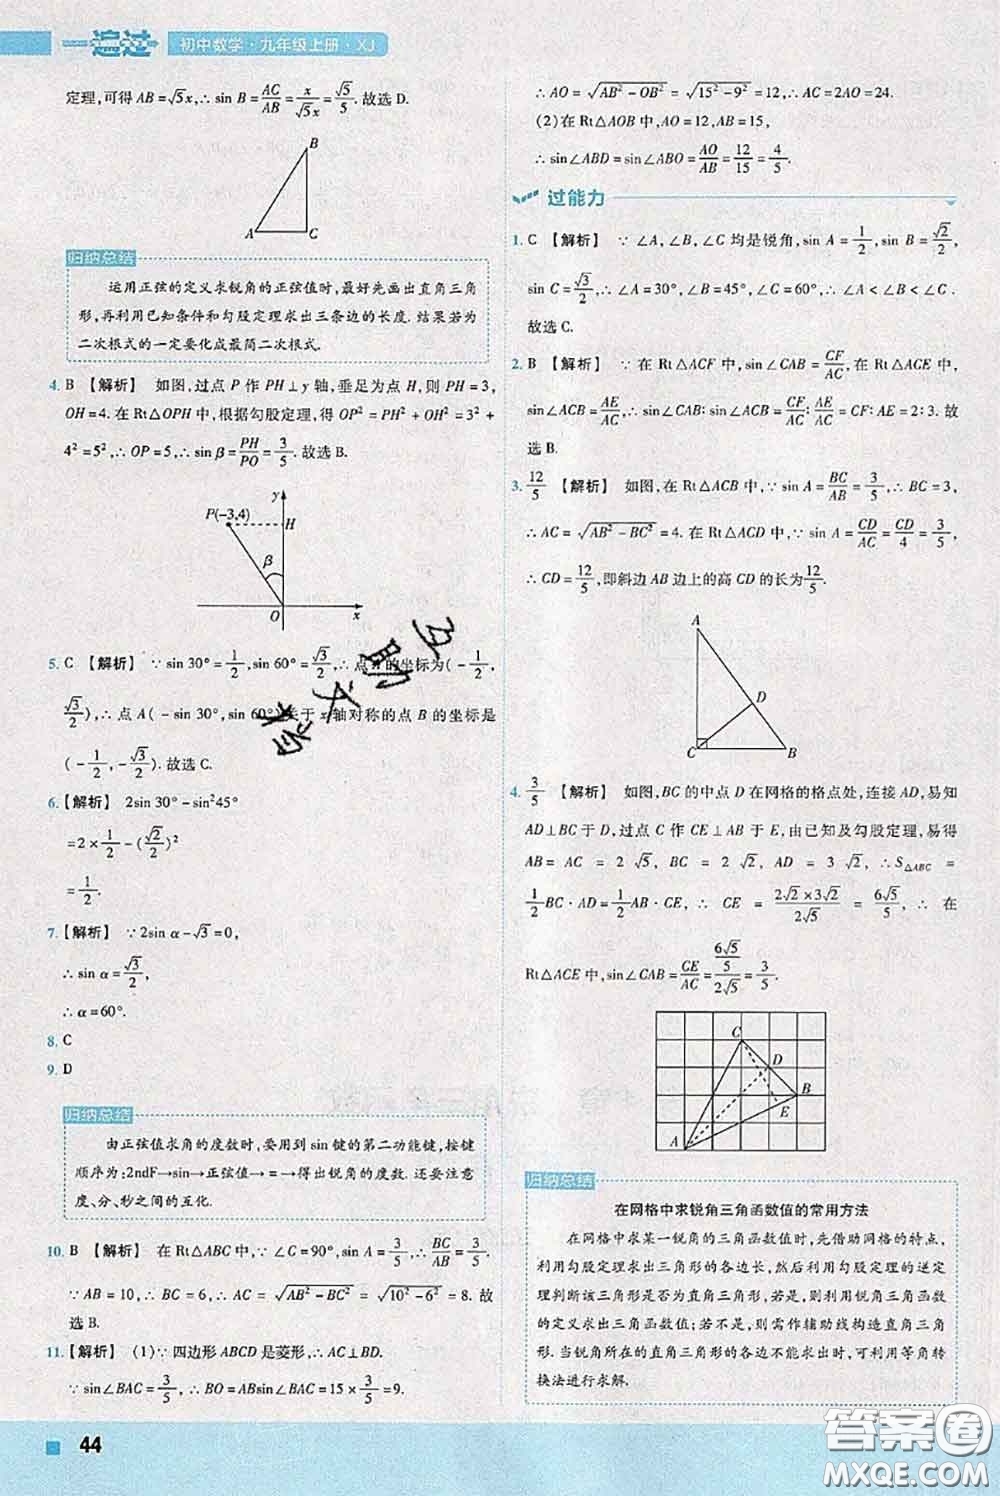 一遍过 初中数学·九年级上册·XJ
定理,可得AB=√5x,∴sin B=AC/AB=x/(√5x)=√5/5.故选D.
B
A C
归纳总结
运用正弦的定义求锐角的正弦值时,最好先画出直角三角
形,再利用已知条件和勾股定理求出三条边的长度.结果若为
二次根式的一定要化成最简二次根式.
4. B 【解析】 如图,过点P作PH⊥y轴,垂足为点H,则PH=3,
OH=4.在Rt△OPH中,根据勾股定理,得OP²=PH²+OH²=3²+
4²=5²,∴OP=5,∴sin β=PH/PO=3/5.故选B.
y
P(-3,4) H
β
O x
5. C 【解析】 ∵sin 30°=1/2,sin 60°=√3/2,∴点A的坐标为(-1/2,
√3/2),∴点A(-sin 30°,sin 60°)关于x轴对称的点B的坐标是
(-1/2,-√3/2).故选C.
6.【解析】 2sin 30°-sin²45°
=2×1/2-(√2/2)²
=1/2.
7.【解析】 ∵2sin α-√3=0,
∴sin α=√3/2,
∴α=60°.
8. C
9. D
归纳总结
由正弦值求角的度数时,要用到sin键的第二功能键,按键
顺序为:2ndF→sin→正弦值→=→得出锐角的度数.还要注意
度、分、秒之间的互化.
10. B 【解析】 在Rt△ABC中,∵∠C=90°,sin A=3/5,∴BC/AB=3/5.
∵AB=10,∴BC=6,∴AC=√(AB²-BC²)=√(10²-6²)=8.故
选B.
11.【解析】 (1)∵四边形ABCD是菱形,∴AC⊥BD.
∵sin∠BAC=3/5,∴BO=ABsin∠BAC=15×3/5=9.
∴AO=√(AB²-OB²)=√(15²-9²)=12,∴AC=2AO=24.
(2)在Rt△AOB中,AO=12,AB=15,
∴sin∠ABD=sin∠ABO=AO/AB=12/15=4/5.
过能力
1. C 【解析】 ∵∠A,∠B,∠C均是锐角,sin A=1/2,sin B=√2/2,
sin C=√3/2,∴∠A=30°,∠B=45°,∠C=60°,∴∠A<∠B<∠C.
故选C.
2. B 【解析】 ∵在Rt△ACF中,sin∠CAB=CF/AC,在Rt△ACE中,
sin∠ACB=AE/AC,∴sin∠CAB∶sin∠ACB=CF/AC∶AE/AC=CF∶AE=2∶3.故
选B.
3. 12/5 【解析】 如图,在Rt△ACB中,∵sin A=BC/AB=3/5,∴BC=3,
∴AC=√(AB²-BC²)=4.在Rt△ACD中,∵sin A=CD/AC=CD/4=3/5,
∴CD=12/5,即斜边AB边上的高CD的长为12/5.
A
D
C B
4. 3/5 【解析】 如图,BC的中点D在网格的格点处,连接AD,易知
AD⊥BC于D,过点C作CE⊥AB于E,由已知及勾股定理,易得
AB=AC=2√5,BC=2√2,AD=3√2,∴S△ABC=
1/2BC·AD=1/2AB·CE,∴CE=(2√2×3√2)/(2√5)=6√5/5,∴在
Rt△ACE中,sin∠CAB=CE/AC=(6√5/5)/(2√5)=3/5.
C
D
B
E
A
归纳总结
在网格中求锐角三角函数值的常用方法
在网格中求某一锐角的三角函数值时,先借助网格的特点,
利用勾股定理求出三角形的各边长,然后利用勾股定理的逆定
理判断该三角形是否为直角三角形,若是,则利用锐角三角函数
的定义求出三角函数值;若不是,则需作辅助线构造直角三角
形.当锐角所在的直角三角形的各边不能求出时,可利用等角转
换法进行求解.
44
答案圈
MXQE.COM